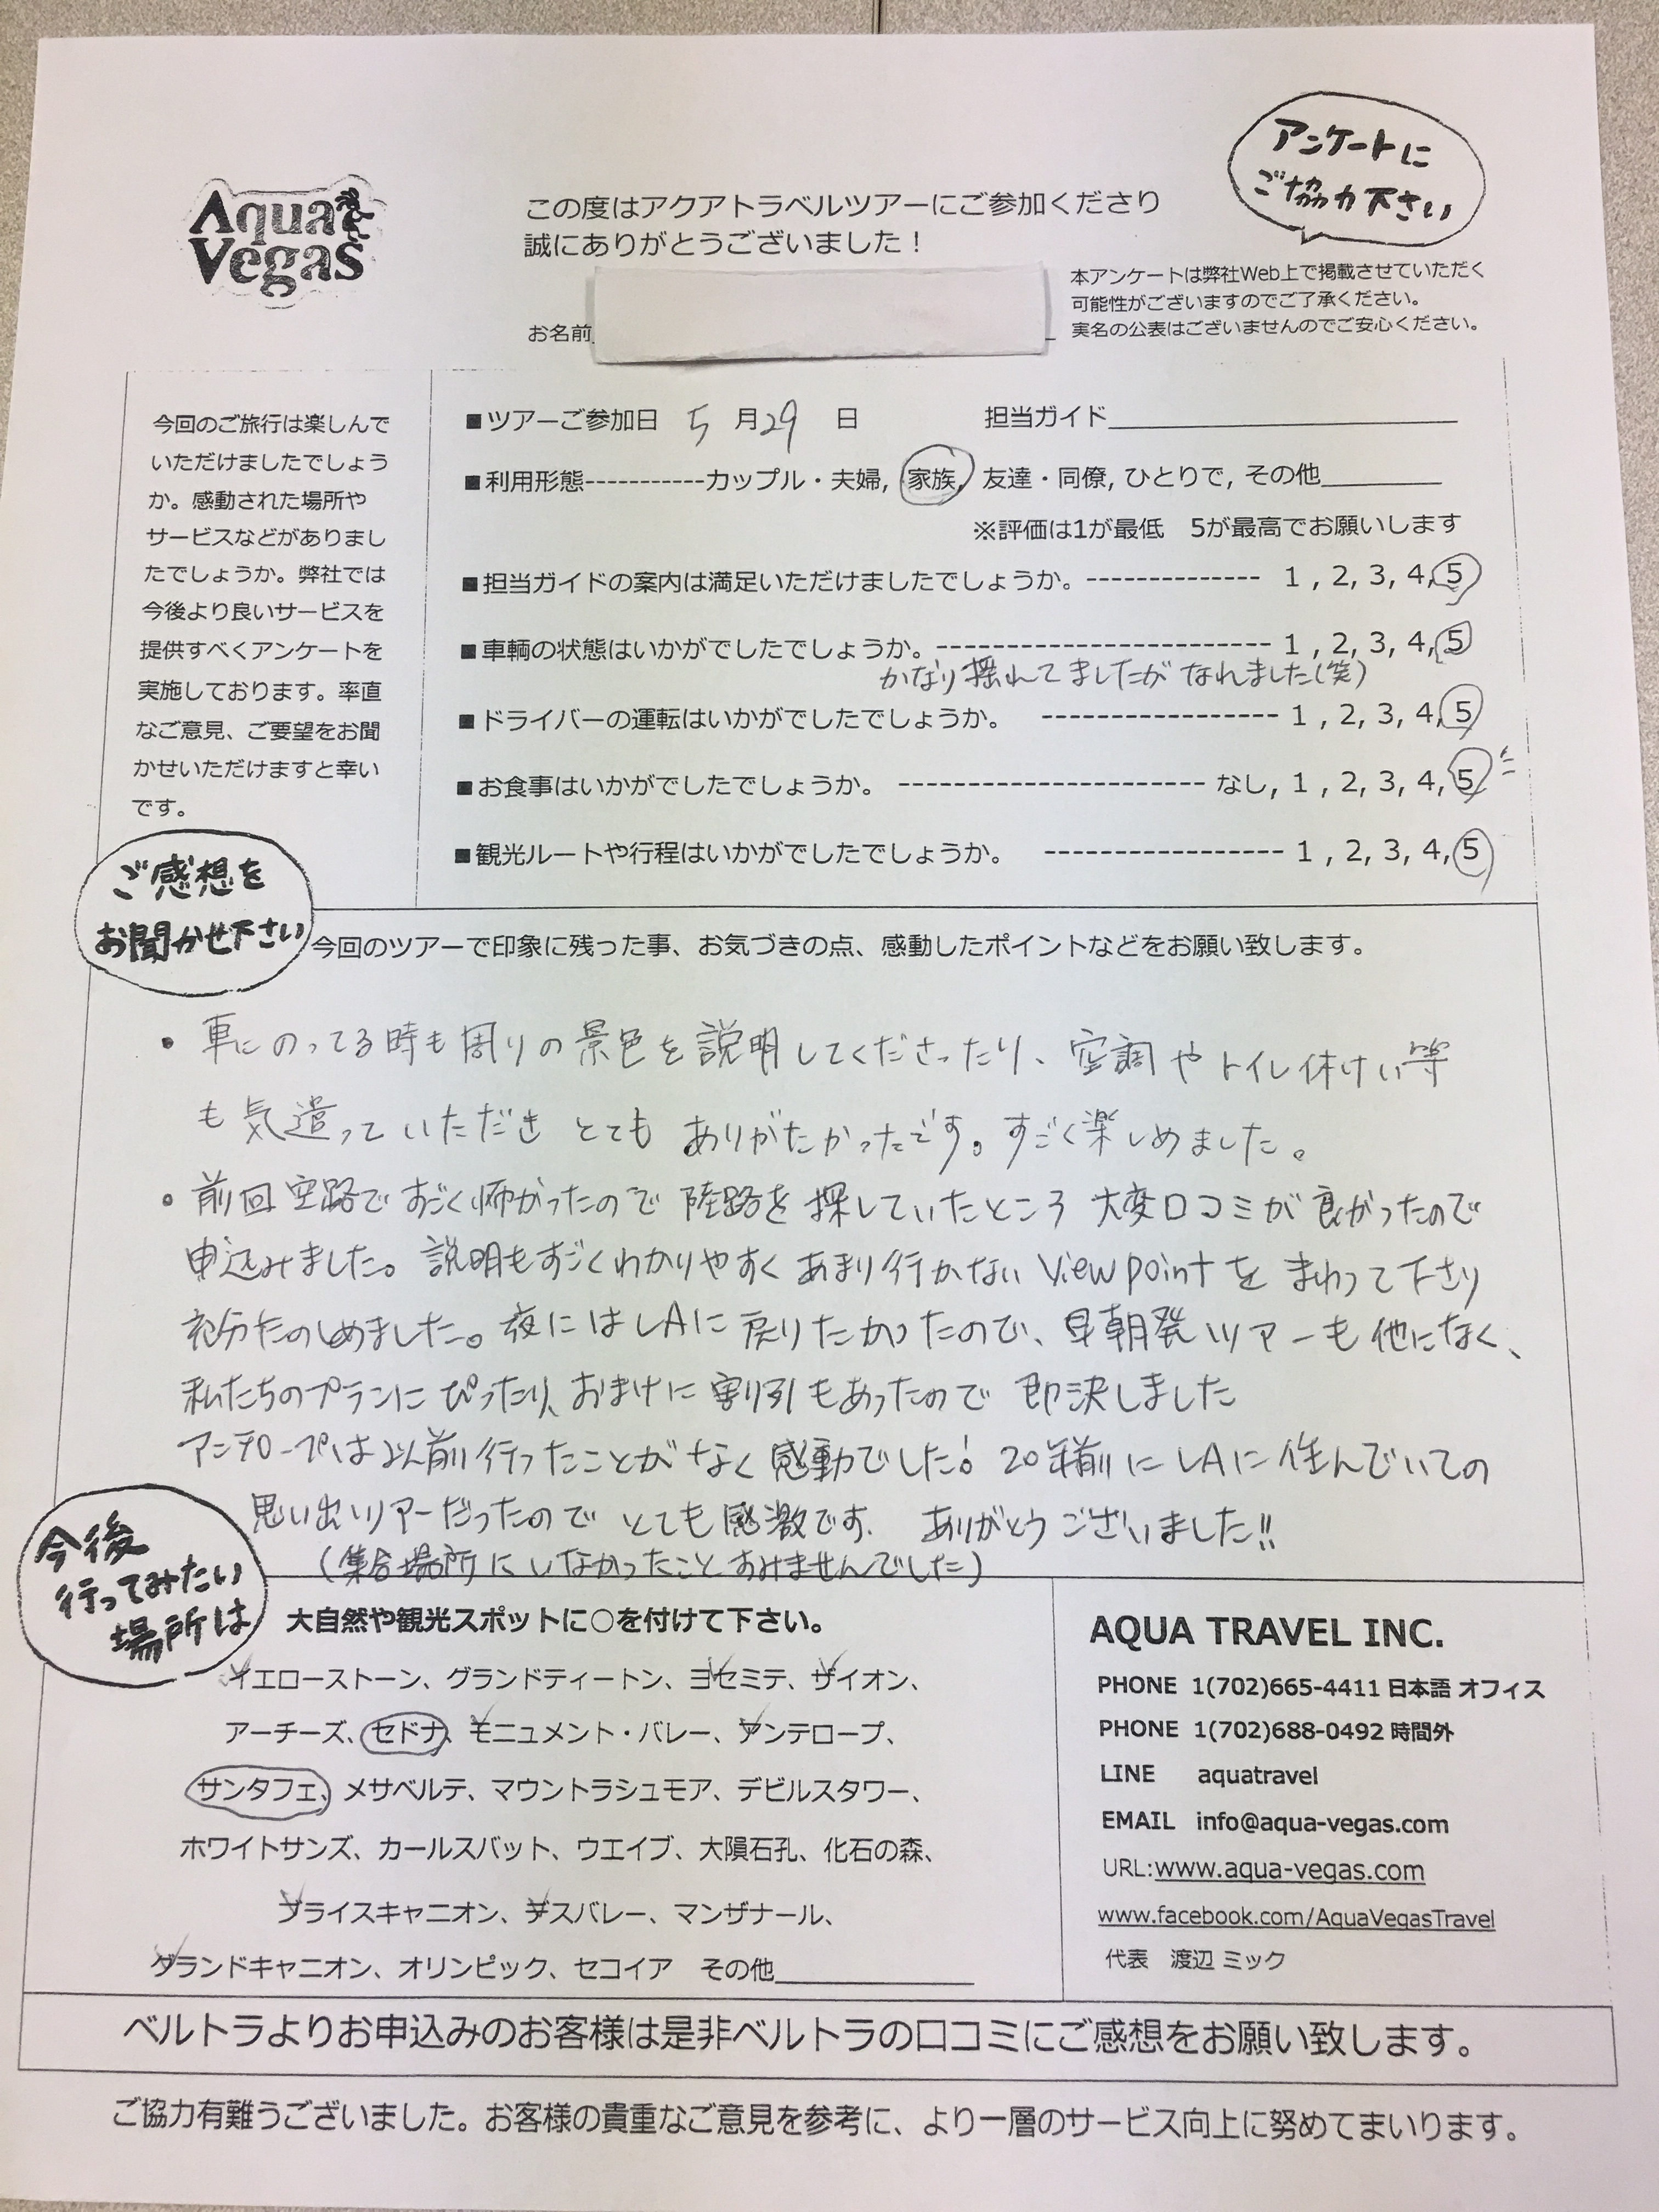 Aqua
Vegas
この度はアクアトラベルツアーにご参加くださり
誠にありがとうございました！
アンケートに
ご協力下さい
お名前
本アンケートは弊社Web上で掲載させていただく
可能性がございますのでご了承ください。
実名の公表はございませんのでご安心ください。
今回のご旅行は楽しんで
いただけましたでしょう
か。感動された場所や
サービスなどがありまし
たでしょうか。弊社では
今後より良いサービスを
提供すべくアンケートを
実施しております。率直
なご意見、ご要望をお聞
かせいただけますと幸い
です。
■ツアーご参加日 5月29日 担当ガイド
■利用形態-----------カップル・夫婦, 家族, 友達・同僚, ひとりで, その他
※評価は1が最低 5が最高でお願いします
■担当ガイドの案内は満足いただけましたでしょうか。-------------- 1 , 2, 3, 4, 5
■車輌の状態はいかがでしたでしょうか。--------------------------- 1 , 2, 3, 4, 5
かなり揺れてましたが なれました(笑)
■ドライバーの運転はいかがでしたでしょうか。 ------------------- 1 , 2, 3, 4, 5
■お食事はいかがでしたでしょうか。 ------------------------- なし, 1 , 2, 3, 4, 5
■観光ルートや行程はいかがでしたでしょうか。 ------------------- 1 , 2, 3, 4, 5
ご感想を
お聞かせ下さい
今回のツアーで印象に残った事、お気づきの点、感動したポイントなどをお願い致します。
・車にのってる時も周りの景色を説明してくださったり、空調やトイレ休けい等
も気遣っていただき とても ありがたかったです。すごく楽しめました。
・前回空路ですごく怖かったので 陸路を探していたところ 大変口コミが良かったので
申込みました。説明もすごくわかりやすく あまり行かない Viewpointを まわって下さり
充分たのしめました。夜にはLAに戻りたかったので、早朝発ツアーも他になく、
私たちのプランにぴったり、おまけに割引もあったので 即決しました
アンテロープは以前行ったことがなく感動でした！20年前にLAに住んでいての
思い出ツアーだったので とても感激です. ありがとうございました!!
(集合場所にいなかったこと すみませんでした)
今後
行ってみたい
場所は
大自然や観光スポットに○を付けて下さい。
イエローストーン、グランドティートン、ヨセミテ、ザイオン、
アーチーズ、セドナ、モニュメント・バレー、アンテロープ、
サンタフェ、メサベルテ、マウントラシュモア、デビルスタワー、
ホワイトサンズ、カールスバット、ウエイブ、大隕石孔、化石の森、
ブライスキャニオン、デスバレー、マンザナール、
グランドキャニオン、オリンピック、セコイア その他
AQUA TRAVEL INC.
PHONE 1(702)665-4411 日本語 オフィス
PHONE 1(702)688-0492 時間外
LINE aquatravel
EMAIL info@aqua-vegas.com
URL:www.aqua-vegas.com
www.facebook.com/AquaVegasTravel
代表 渡辺 ミック
ベルトラよりお申込みのお客様は是非ベルトラの口コミにご感想をお願い致します。
ご協力有難うございました。お客様の貴重なご意見を参考に、より一層のサービス向上に努めてまいります。